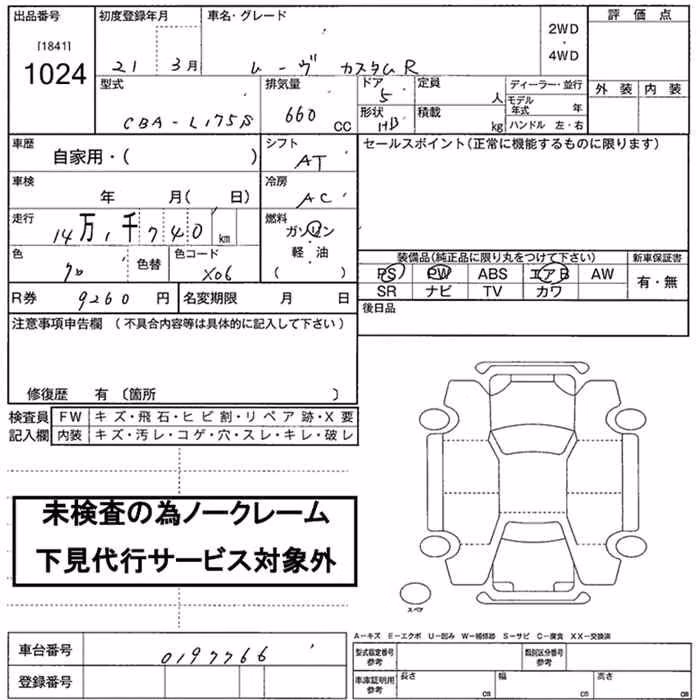 出品番号 初度登録年月 車名・グレード 評価点
[1841]
1024
21 3月 ムーヴ カスタムR
2WD
・
4WD
型式 排気量 ドア 定員 ディーラー・並行 外装 内装
CBA-L175S 660 CC 5 人
形状 積載 モデル年式 年
HB kg ハンドル 左・右
車歴 シフト セールスポイント(正常に機能するものに限ります)
自家用・( ) AT
車検 冷房
年 月( 日) AC
走行 燃料
14万1千740km ガソリン
軽・油
( )
色 色替 色コード 装備品(純正品に限り丸をつけて下さい) 新車保証書
X06
PS PW ABS エアB AW 有・無
SR ナビ TV カワ
R券 9260円 名変期限 月 日 後日品
注意事項申告欄 (不具合内容等は具体的に記入して下さい)
修復歴 有 〔箇所 〕
検査員 FW キズ・飛石・ヒビ割・リペア跡・X要
記入欄 内装 キズ・汚レ・コゲ・穴・スレ・キレ・破レ
未検査の為ノークレーム
下見代行サービス対象外
スペア
A-キズ E-エクボ U-凹み W-補修跡 S-サビ C-腐食 XX-交換済
車台番号 0197766 型式指定番号 参考 類別区分番号 参考
登録番号 車庫証明用 参考 長さ cm 幅 cm 高さ cm